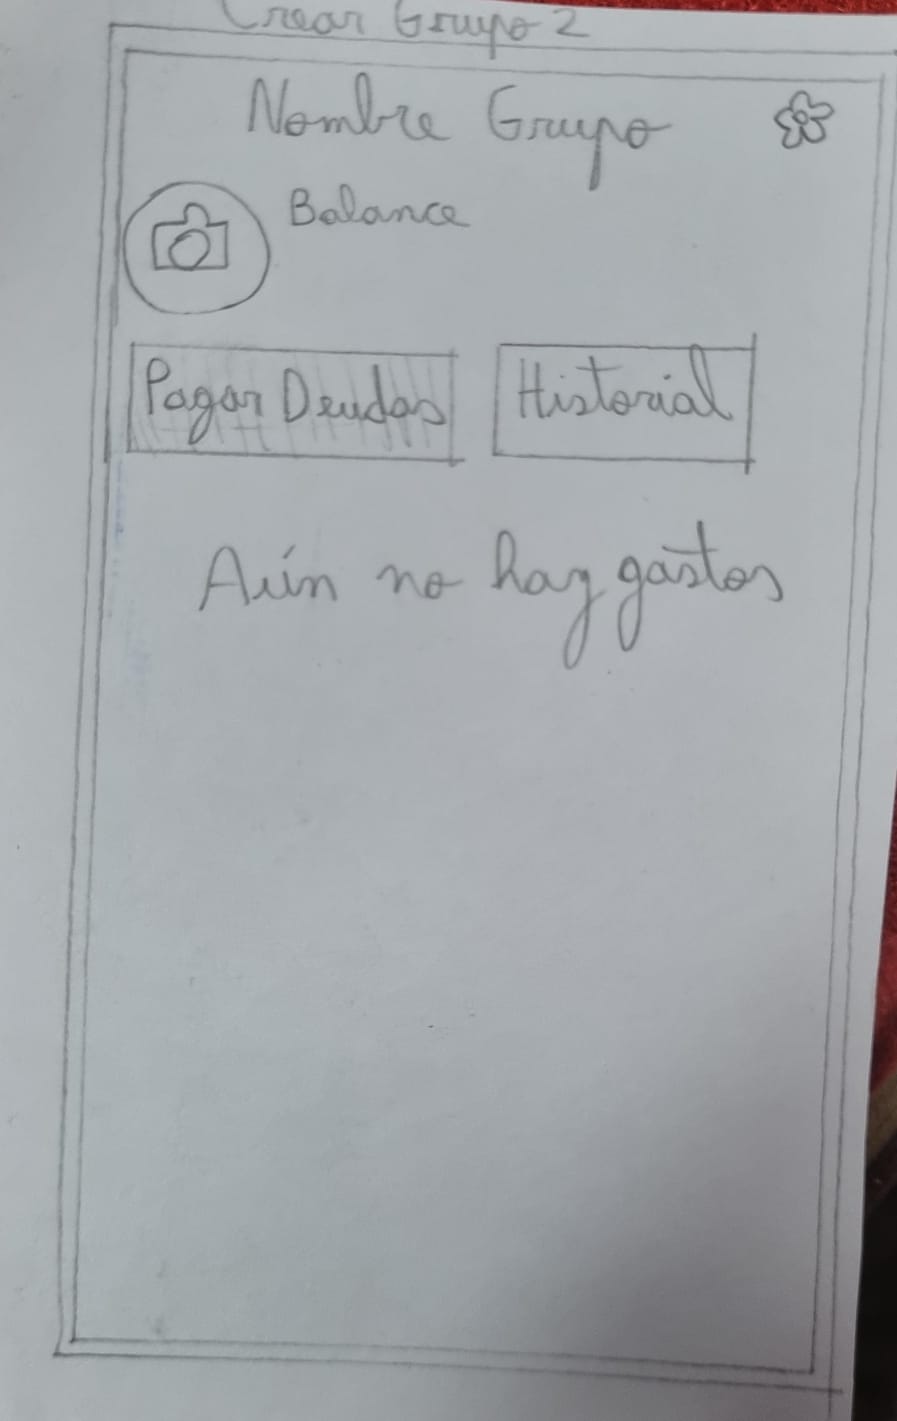 Crear Grupo 2
Nombre Grupo
Balance
Pagar Deudas
Historial
Aún no hay gastos